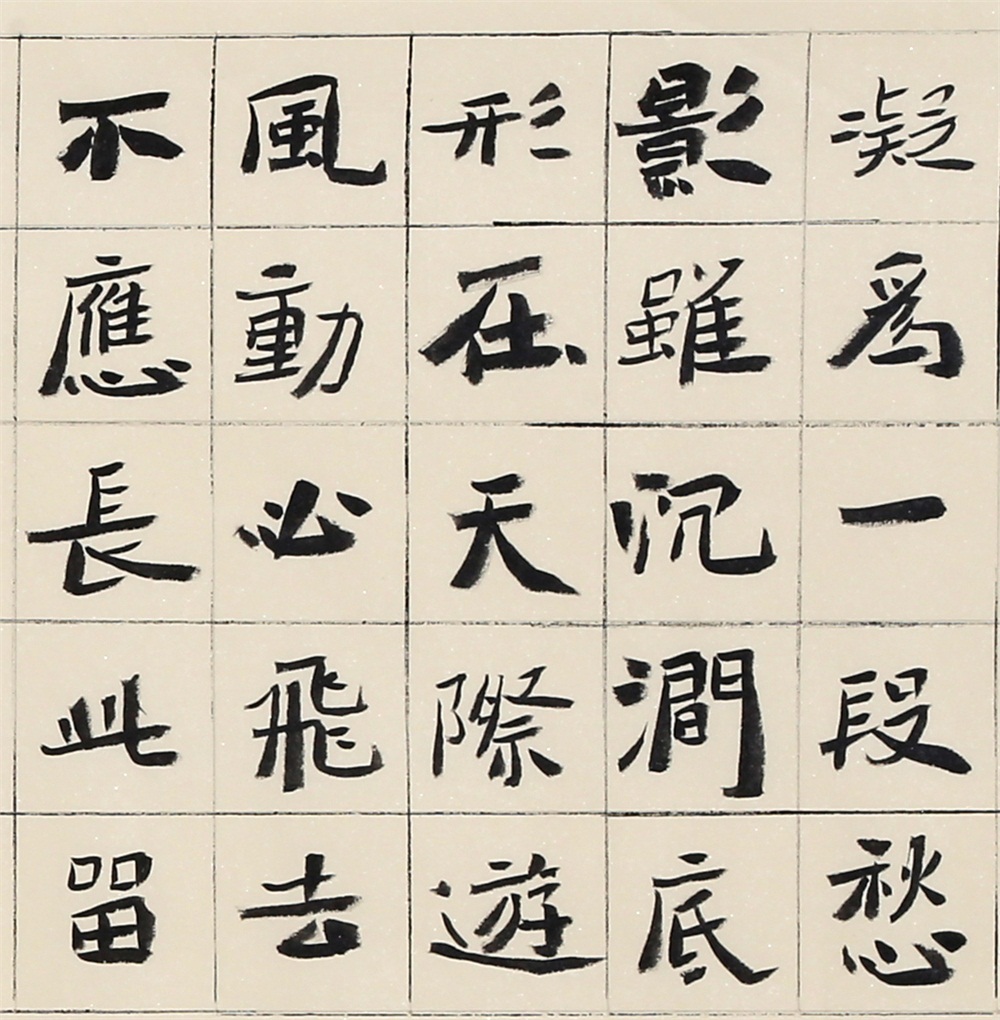 凝爲一段愁
影雖沉澗底
形在天際遊
風動必飛去
不應長此留